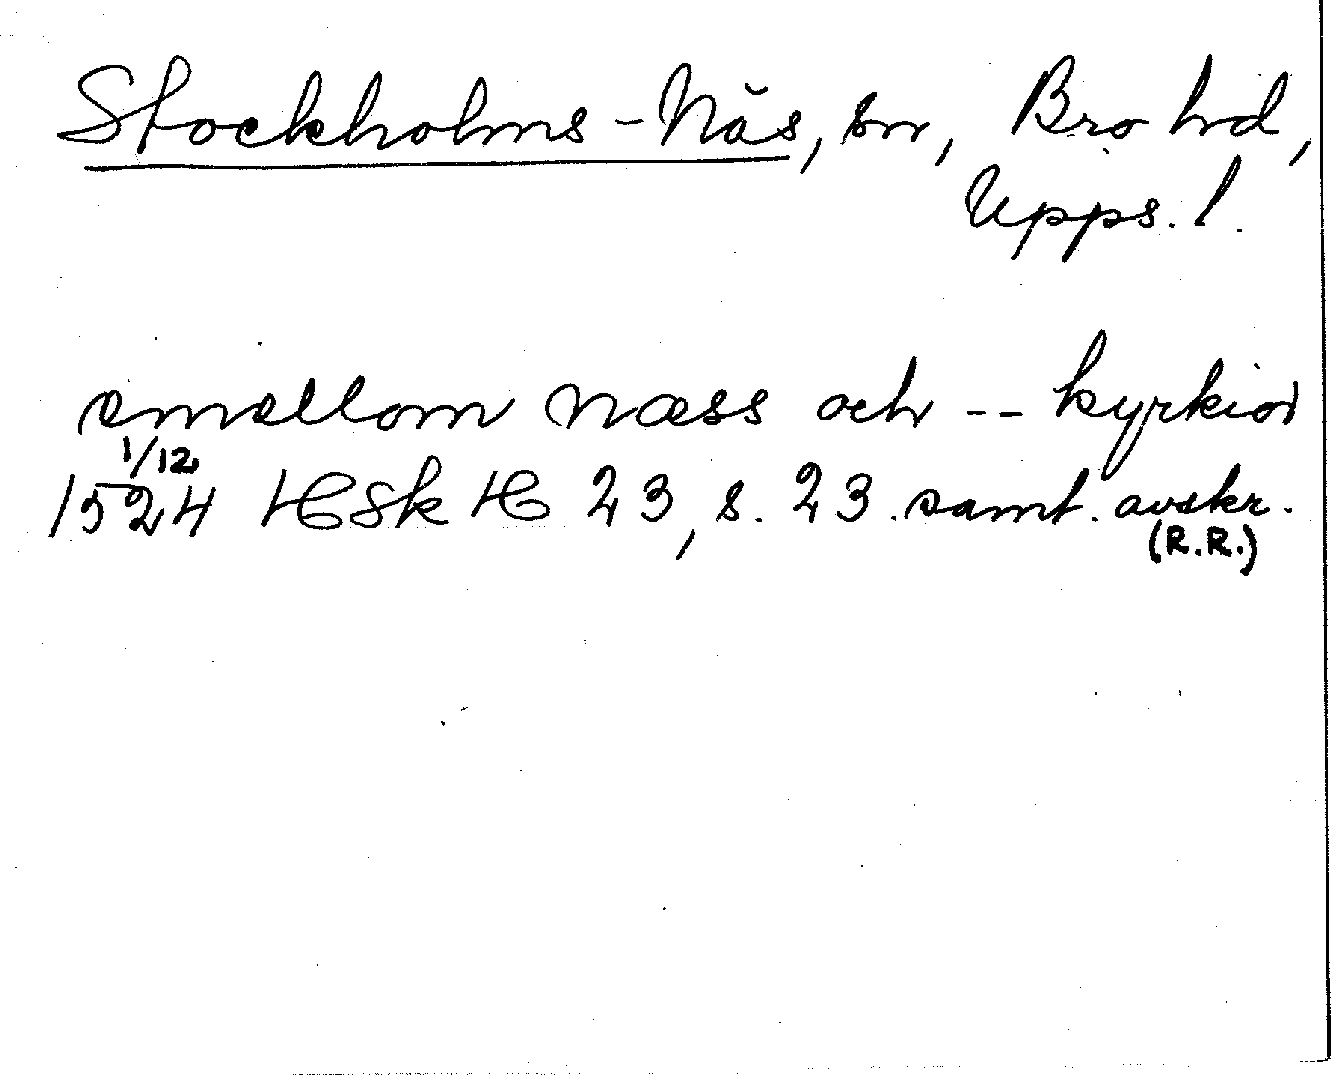 Stockholms-Näs, sn, Bro hd,
Upps. l.
emellom Næss och -- kyrkior
1/12
1524 HSH 23, s. 23. samt. avskr.
(R.R.)